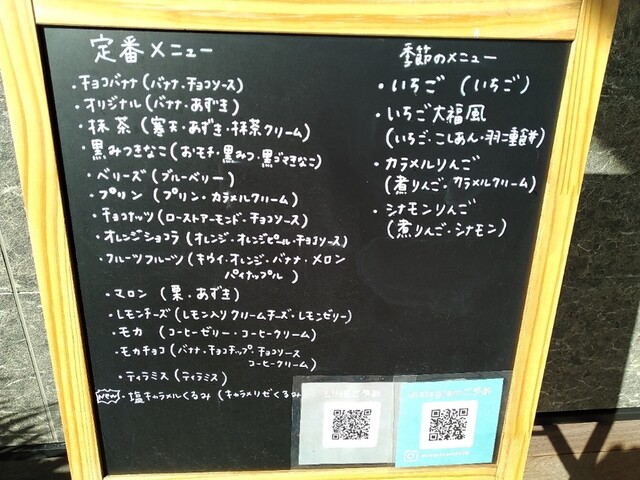 定番メニュー
・チョコバナナ(バナナ・チョコソース)
・オリジナル(バナナ・あずき)
・抹茶(寒天・あずき・抹茶クリーム)
・黒みつきなこ(おモチ・黒みつ・黒ゴマきなこ)
・ベリーズ(ブルーベリー)
・プリン(プリン・カラメルクリーム)
・チョコナッツ(ローストアーモンド・チョコソース)
・オレンジショコラ(オレンジ・オレンジピール・チョコソース)
・フルーツフルーツ(キウイ・オレンジ・バナナ・メロン
パイナップル)
・マロン(栗・あずき)
・レモンチーズ(レモン入りクリームチーズ・レモンゼリー)
・モカ(コーヒーゼリー・コーヒークリーム)
・モカチョコ(バナナ・チョコチップ・チョコソース
コーヒークリーム)
・ティラミス(ティラミス)
NEW・塩キャラメルくるみ(キャラメリゼくるみ
季節のメニュー
・いちご(いちご)
・いちご大福風
(いちご・こしあん・羽二重餅)
・カラメルりんご
(煮りんご・カラメルクリーム)
・シナモンりんご
(煮りんご・シナモン)